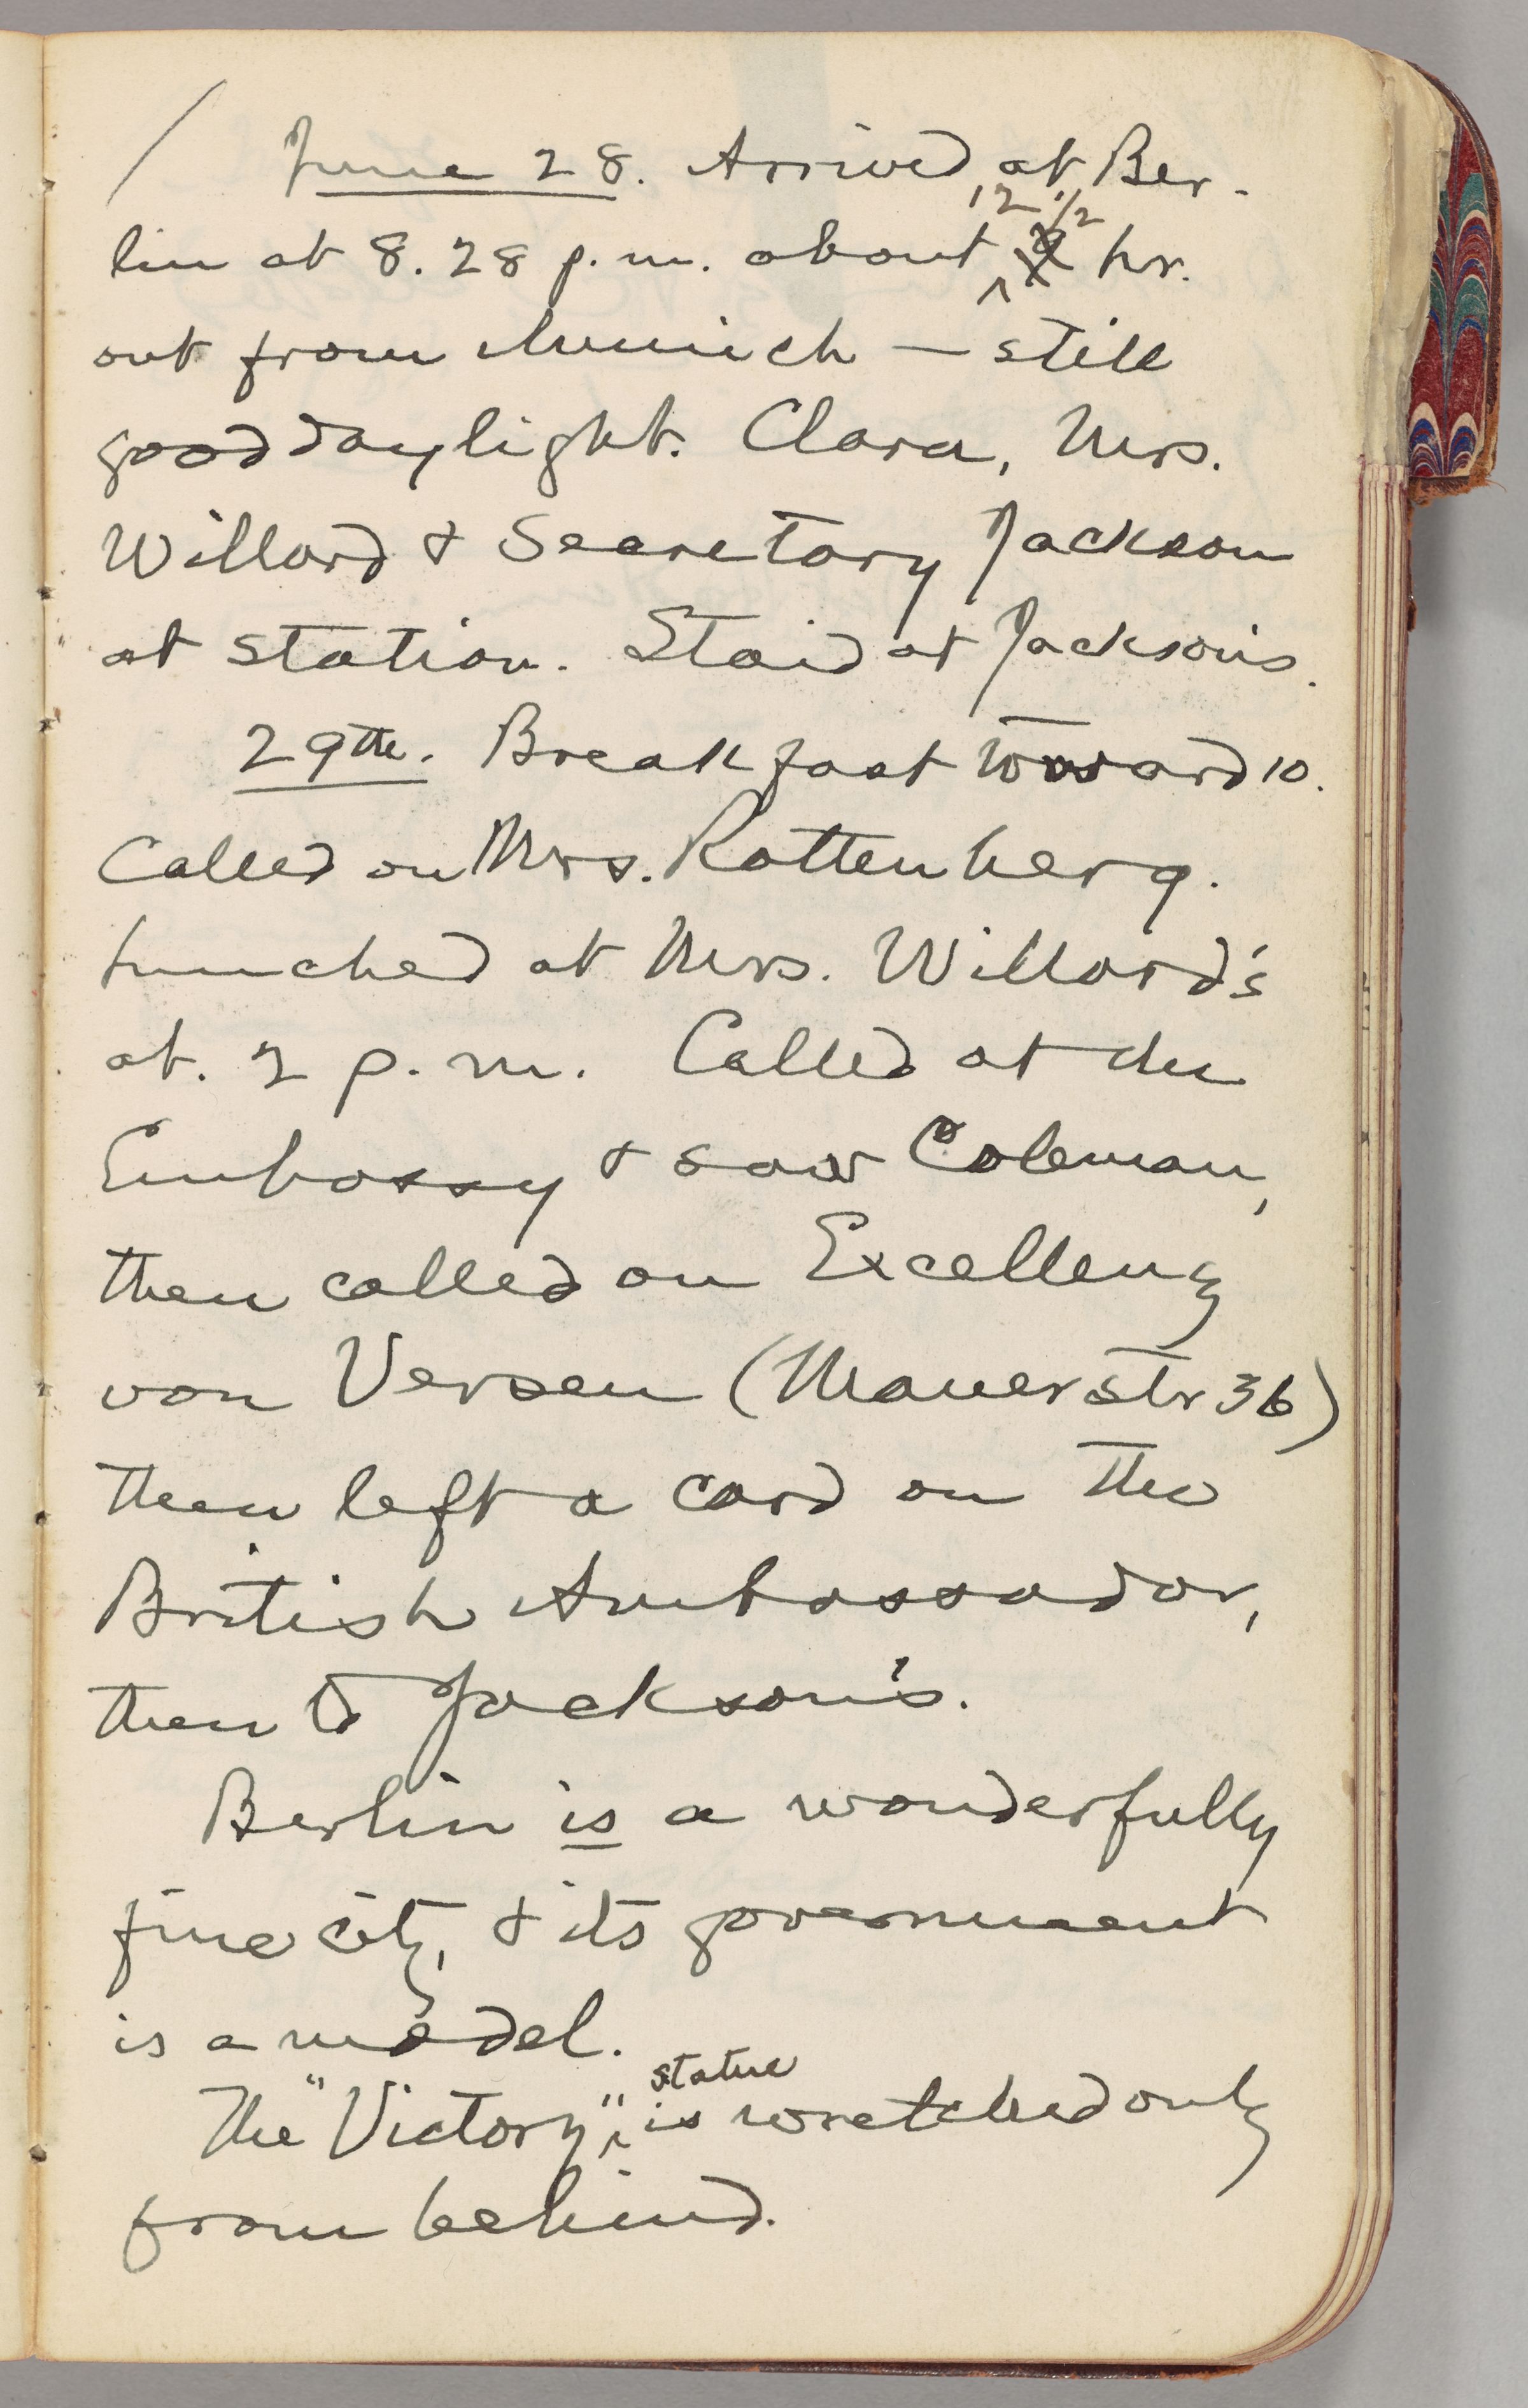 June 28. Arrived at Ber-
lin at 8.28 p.m. about 12 1/2 hr.
out from Munich — still
good daylight. Clara, Mrs.
Willard & Secretary Jackson
at station. Staid at Jackson's.
29th. Breakfast toward 10.
Called on Mrs. Rottenberg.
Lunched at Mrs. Willard's
at. 2 p.m. Called at the
Embassy & saw Coleman,
then called on Excellenz
von Versen (Mauerstr 36)
then left a card on the
British Ambassador,
then to Jackson's.
Berlin is a wonderfully
fine city, & its government
is a model.
The "Victory" statue is wretched only
from behind.